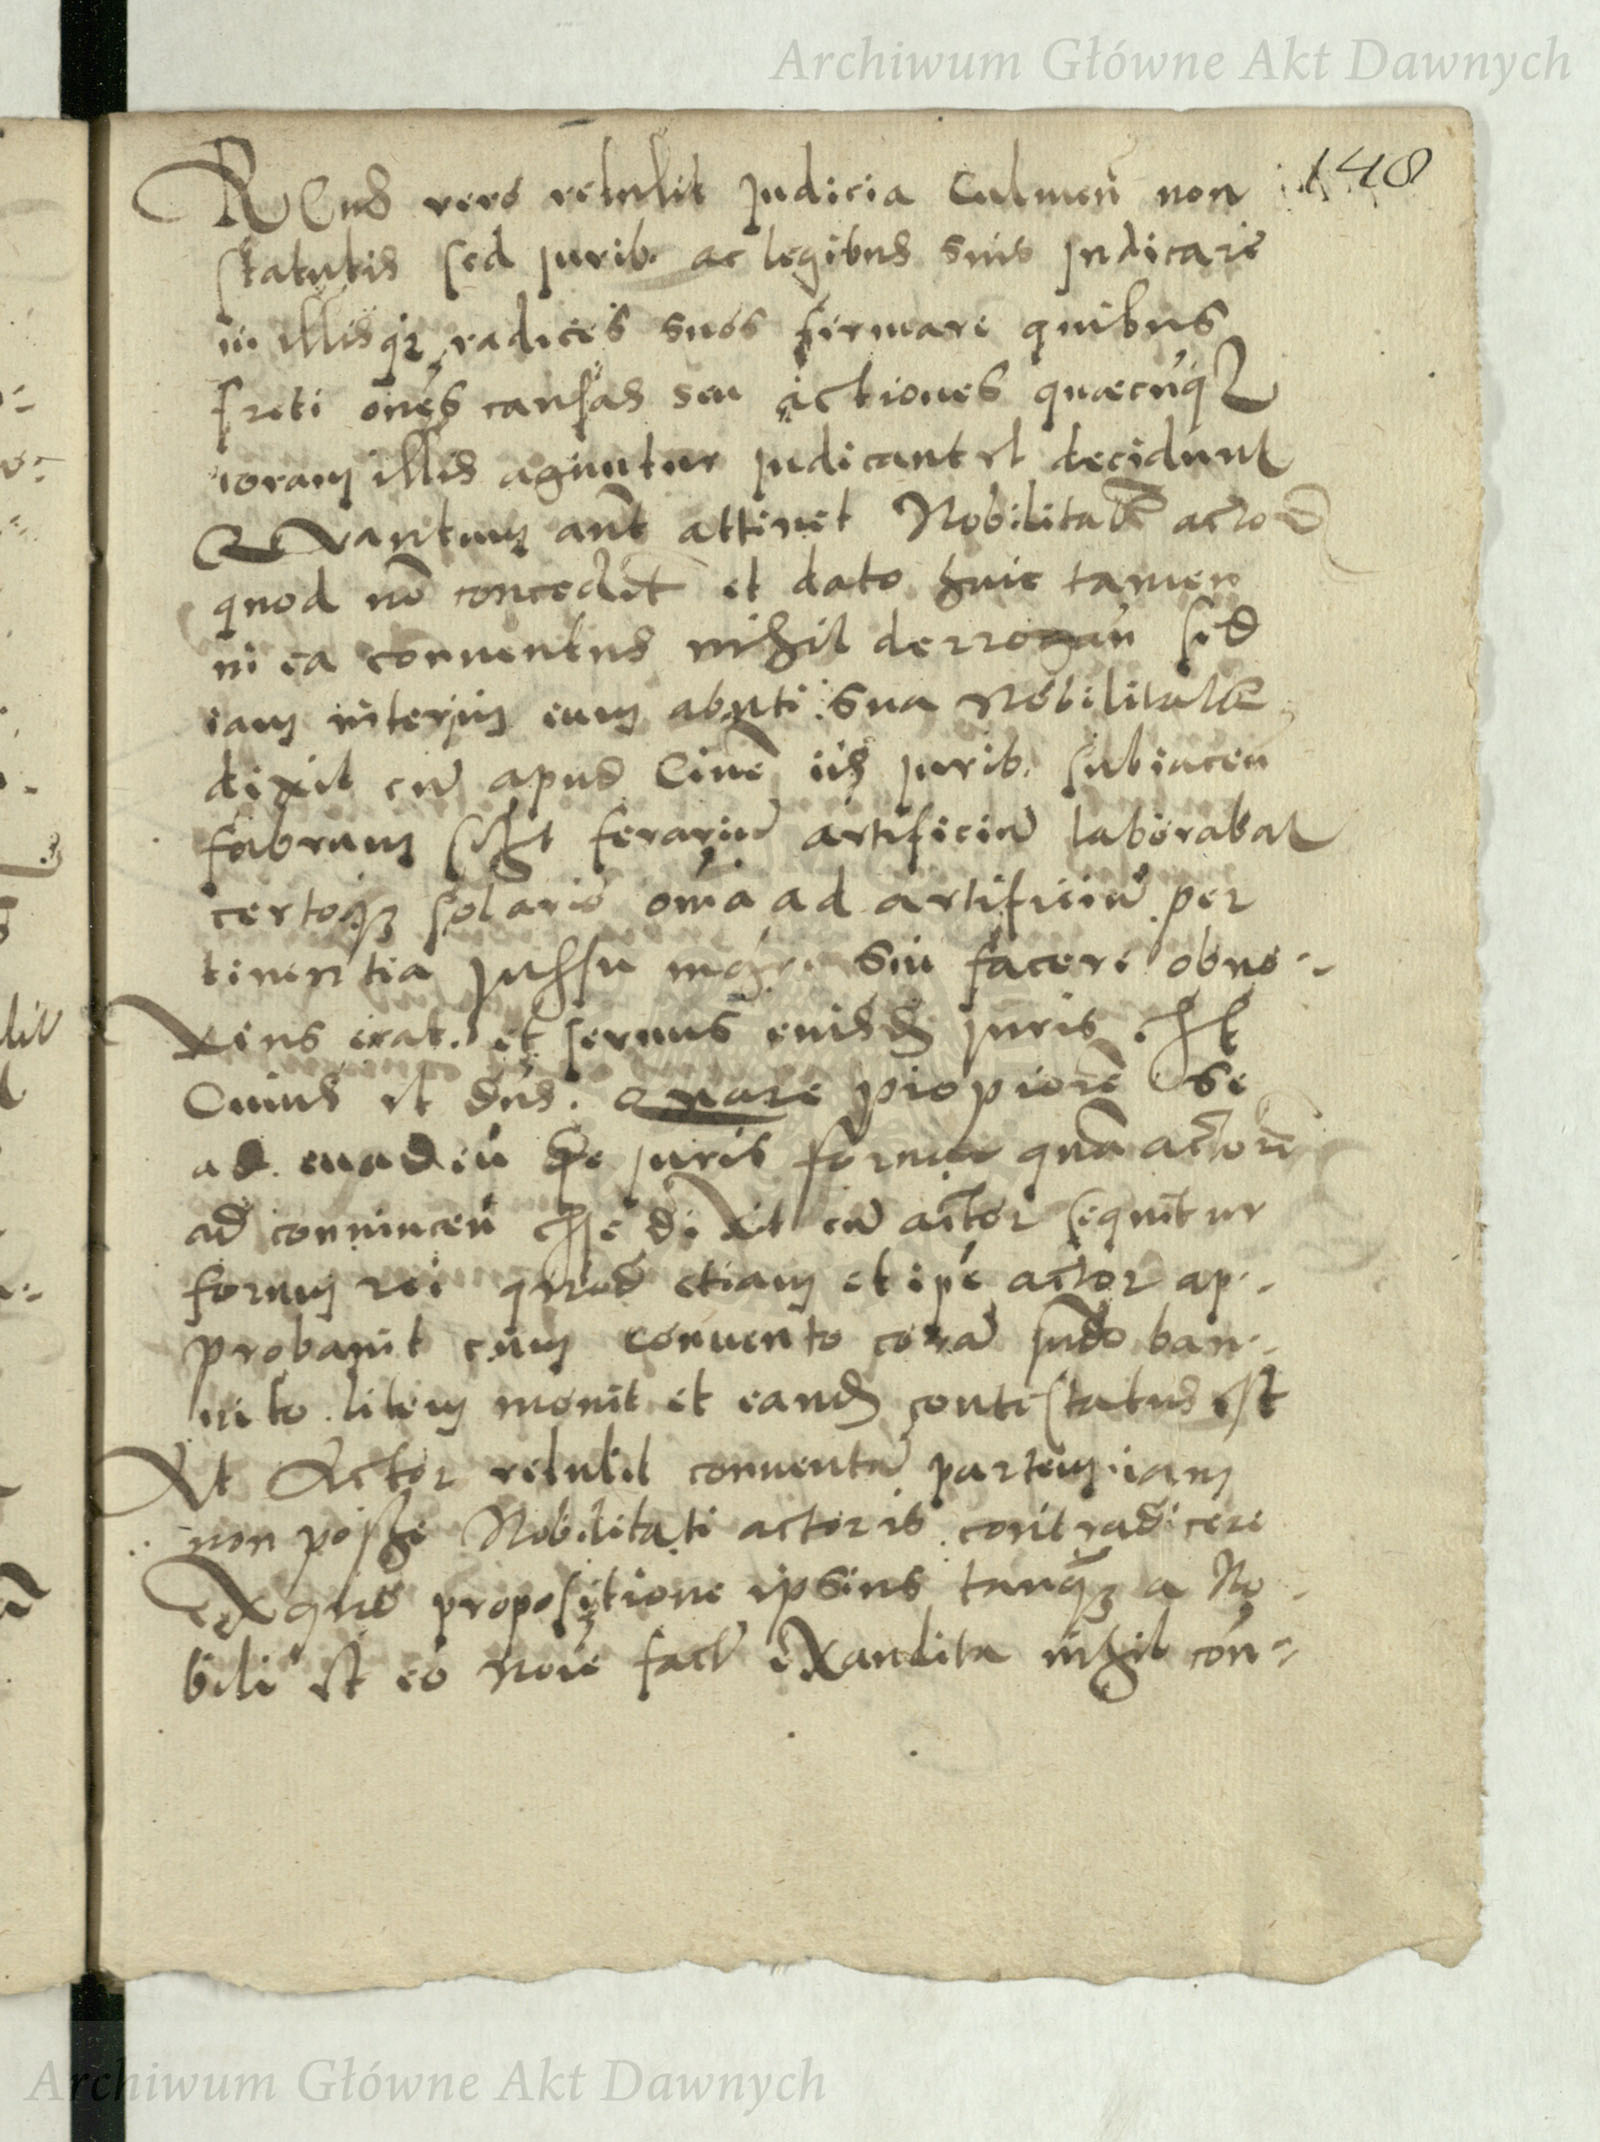 Archiwum Główne Akt Dawnych
148
REus vero retulit judicia Culmeñ non
statutis sed jurib. ac legibus suis judicare
in illisqꝫ radices suos firmare quibus
freti oñes causas seu actiones quæcūqꝫ
coram illis aguntur judicant et decidunt
QVantum aūt attinet Nobilitatē actor
quod nō concedit et dato huic tamen
in ea conuentus nihil derrogañ sed
iam interim eum abuti sua Nobilitate
dixit cū apud Ciuē iis jurib. subiaceñ
fabrum ferariū artificiū laborabat
certoqꝫ solario om̄ia ad artificiū per
tinentia jussu mägri sui facere obno-
Xius erat. et seruus euisdē juris est
Cuius et dn̄s. quare propiorē se
ad euadeñ de juris forma quā actorē
ad conuinceñ esse diXit cū actor sequitur
forum rei quod etiam et ipē actor ap-
probauit cum conuento corā judō ban-
nito litem mouit et eandē contestatus est
At Actor retulit conuentā partem iam
non posse Nobilitati actoris contradicere
EXquo propositione ipsius tanqꝫ a No-
bili est eo noīe fact eXaudita nihil con-
Archiwum Główne Akt Dawnych